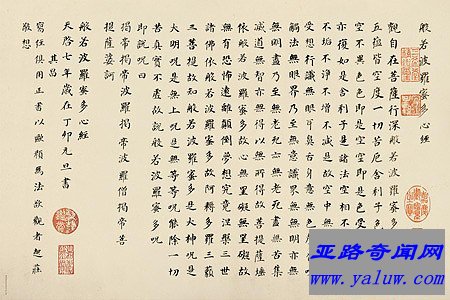 般若波羅蜜多心經
觀自在菩薩行深般若波羅蜜多
五蘊皆空度一切苦厄舍利子色
空不異色色即是空空即是色受
亦復如是舍利子是諸法空相不
不垢不淨不增不減是故空中無
受想行識無眼耳鼻舌身意無色
觸法無眼界乃至無意識界無無明亦無
無明盡乃至無老死亦無老死盡無苦集
滅道無智亦無得以無所得故菩提薩埵
依般若波羅蜜多故心無罣礙無罣礙故
無有恐怖遠離顛倒夢想究竟涅槃三世
諸佛依般若波羅蜜多故阿耨多羅三藐
三菩提故知般若波羅蜜多是大神咒是
大明咒是無上咒是無等等咒能除一切
苦真實不虛故說般若波羅蜜多咒
即說咒曰
揭帝揭帝波羅揭帝波羅僧揭帝菩
提薩婆訶
般若波羅蜜多心經
天啓七年歲在丁卯元旦書
其昌
寫經俱用正書以歐顏為法欲觀者起莊
敬想
亚路奇闻网
www.yaluw.com